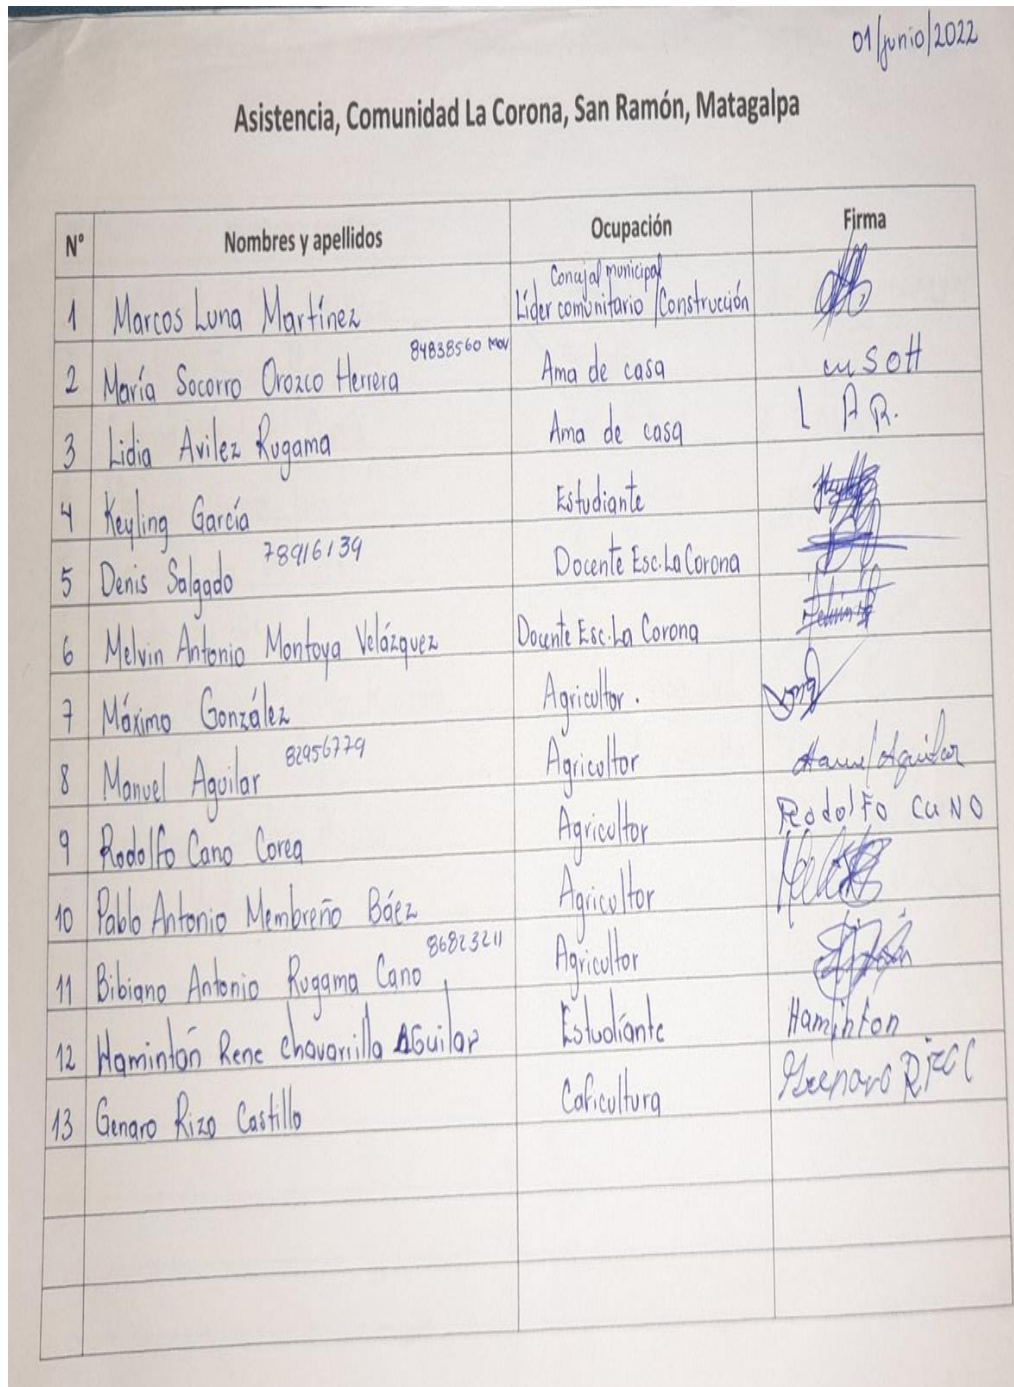 01/junio/2022
Asistencia, Comunidad La Corona, San Ramón, Matagalpa
N° Nombres y apellidos Ocupación Firma
Concejal municipal
1 Marcos Luna Martínez Líder comunitario /Construcción
84838560 Mov
2 María Socorro Orozco Herrera Ama de casa m SOH
3 Lidia Avilez Rugama Ama de casa L A R.
4 Keyling García Estudiante
78916139
5 Denis Salgado Docente Esc. La Corona
6 Melvin Antonio Montoya Velázquez Docente Esc. La Corona
7 Máximo González Agricultor.
82956779
8 Manuel Aguilar Agricultor Manuel Aguilar
9 Rodolfo Cano Corea Agricultor Rodolfo CaNO
10 Pablo Antonio Membreño Báez Agricultor
86823211
11 Bibiano Antonio Rugama Cano Agricultor
12 Hamintón Rene Chavarrilla AGuilar Estudiante Haminton
13 Genaro Rizo Castillo Caficultura Genaro